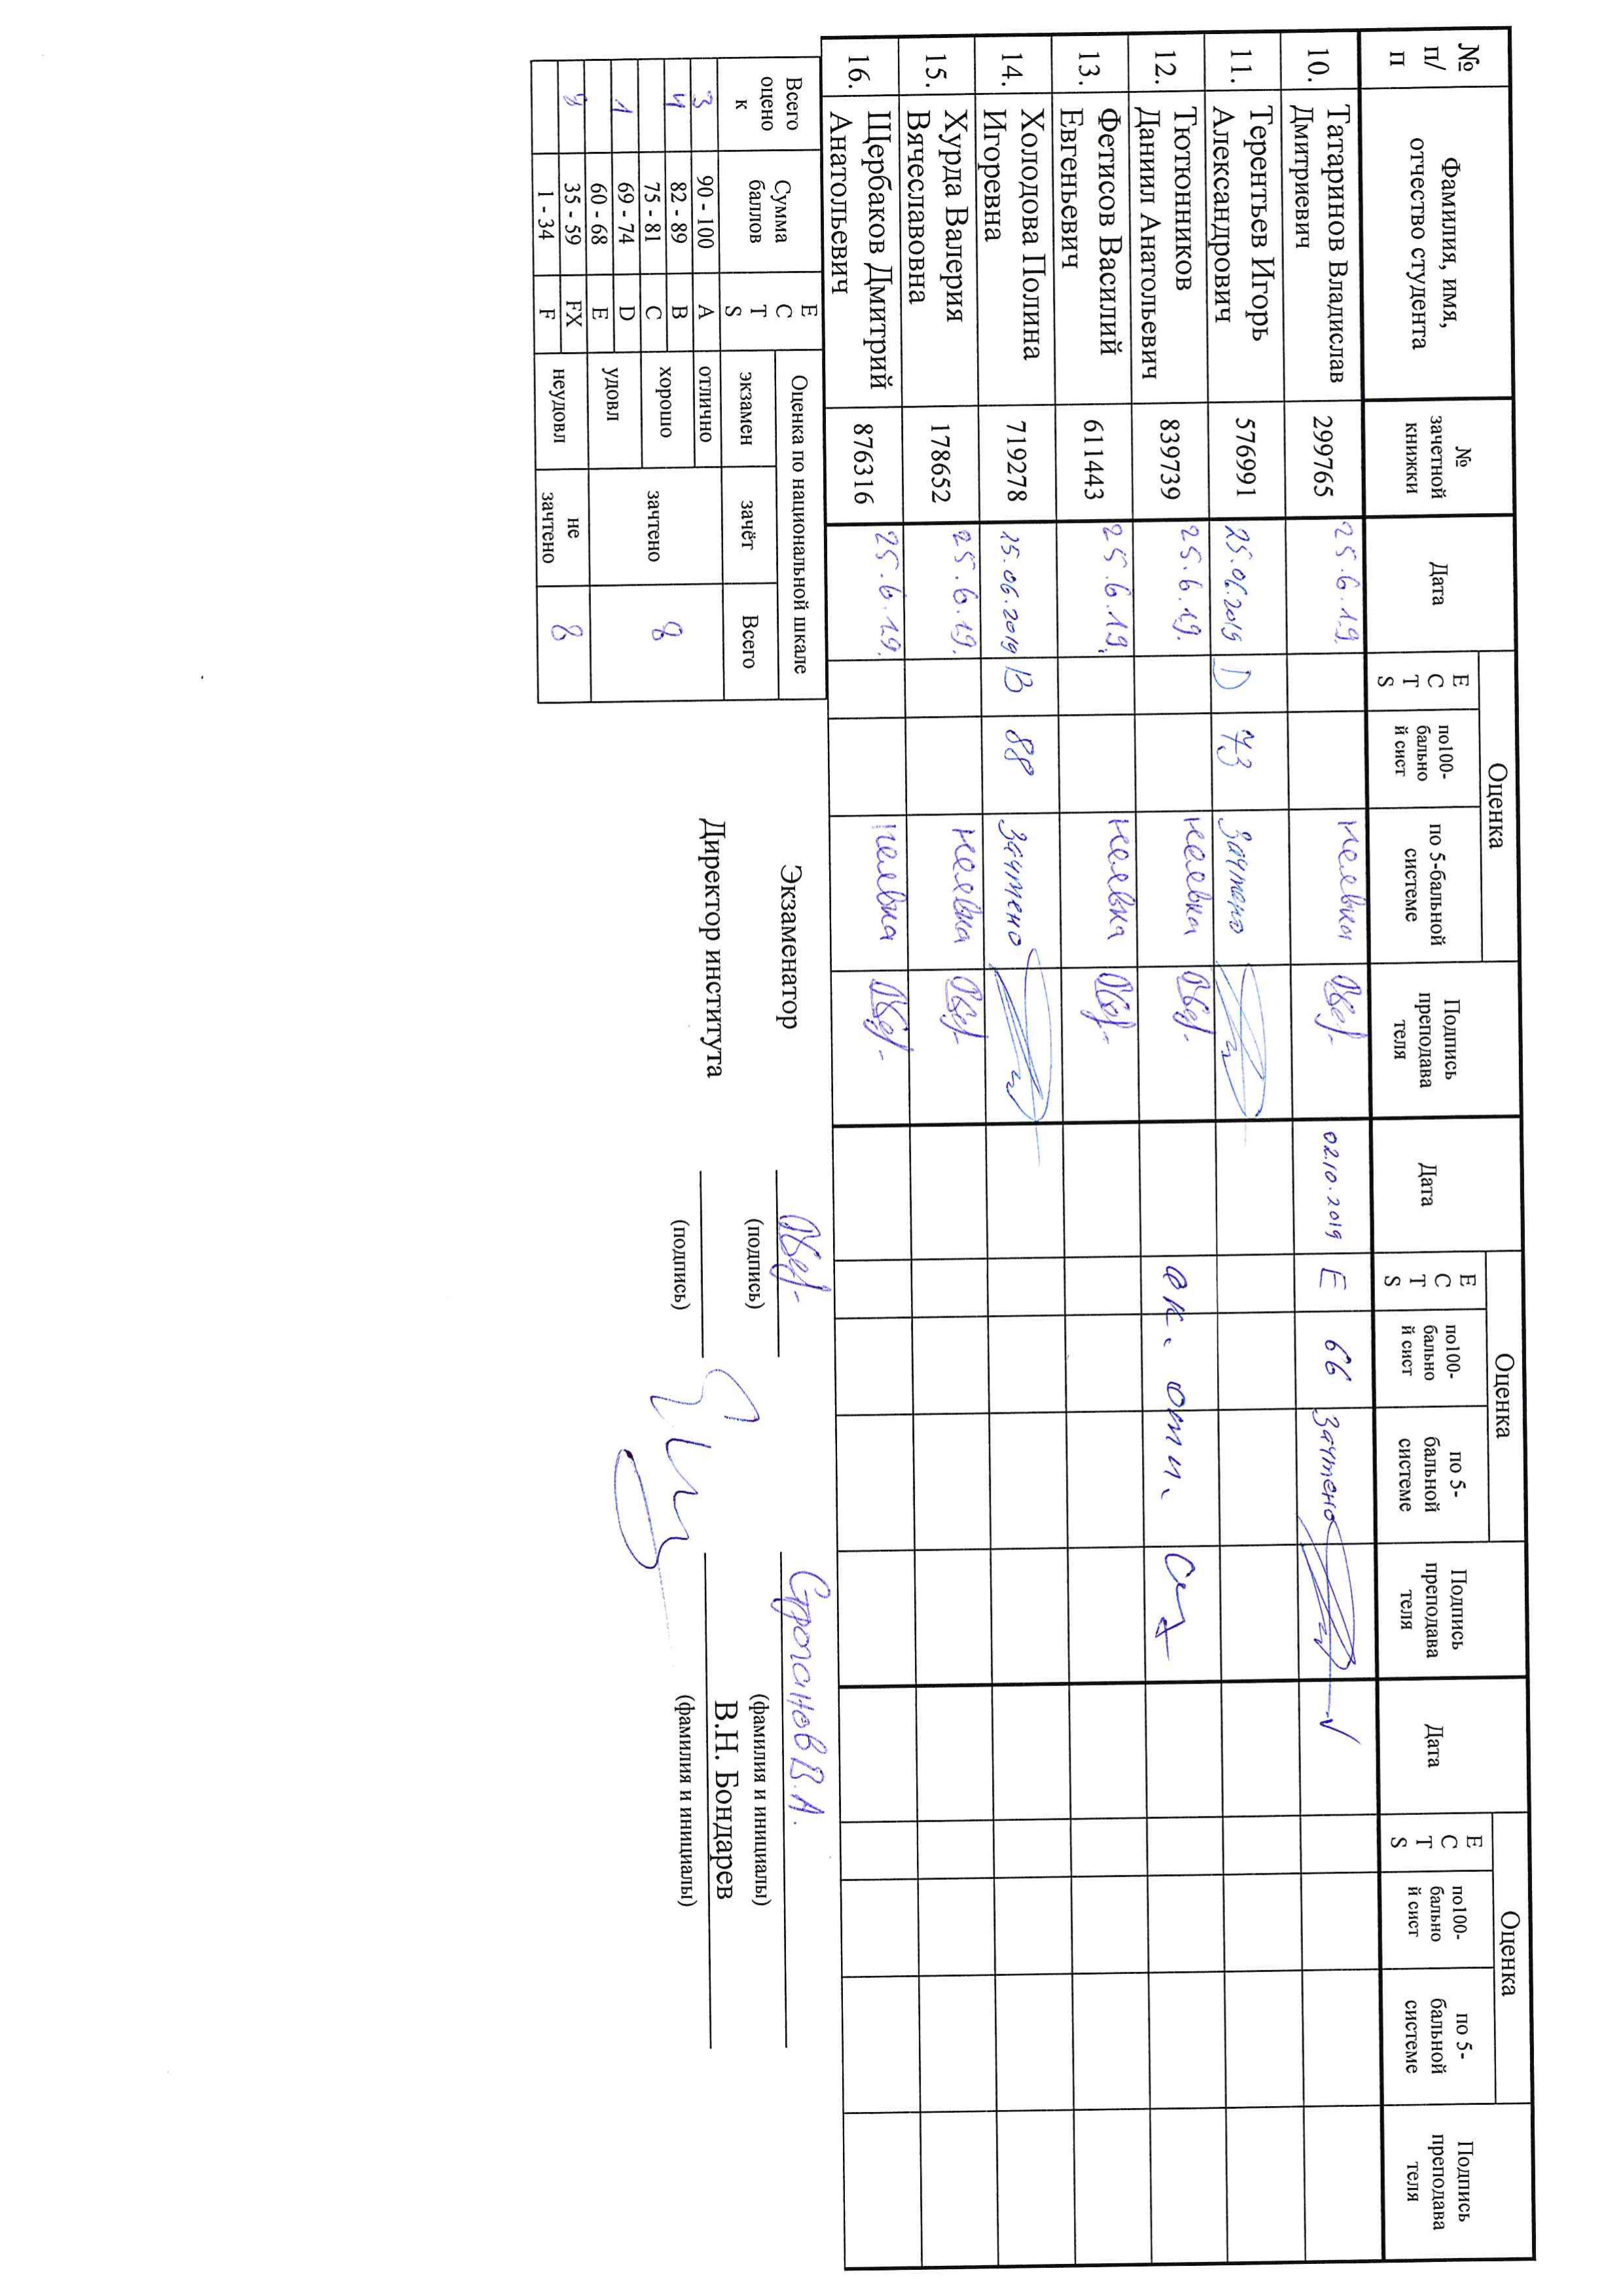 № п/п Фамилия, имя, отчество студента № зачетной книжки Дата Оценка Подпись преподавателя Дата Оценка Подпись преподавателя Дата Оценка Подпись преподавателя
ECTS по100-бальной сист по 5-бальной системе ECTS по100-бальной сист по 5-бальной системе ECTS по100-бальной сист по 5-бальной системе
10. Татаринов Владислав Дмитриевич 299765 25.6.19. неявка 02.10.2019 E 66 зачтено
11. Терентьев Игорь Александрович 576991 25.06.2019 D 73 зачтено
12. Тютюнников Даниил Анатольевич 839739 25.6.19. неявка ак. отп.
13. Фетисов Василий Евгеньевич 611443 25.6.19. неявка
14. Холодова Полина Игоревна 719278 25.06.2019 B 88 зачтено
15. Хурда Валерия Вячеславовна 178652 25.6.19. неявка
16. Щербаков Дмитрий Анатольевич 876316 25.6.19. неявка
Всего оценок Сумма баллов ECTS Оценка по национальной шкале
экзамен зачёт Всего
3 90 - 100 A отлично зачтено 8
4 82 - 89 B хорошо
75 - 81 C
1 69 - 74 D удовл
60 - 68 E
8 35 - 59 FX неудовл не зачтено 8
1 - 34 F
Экзаменатор Строганов В.А.
(подпись) (фамилия и инициалы)
Директор института В.Н. Бондарев
(подпись) (фамилия и инициалы)